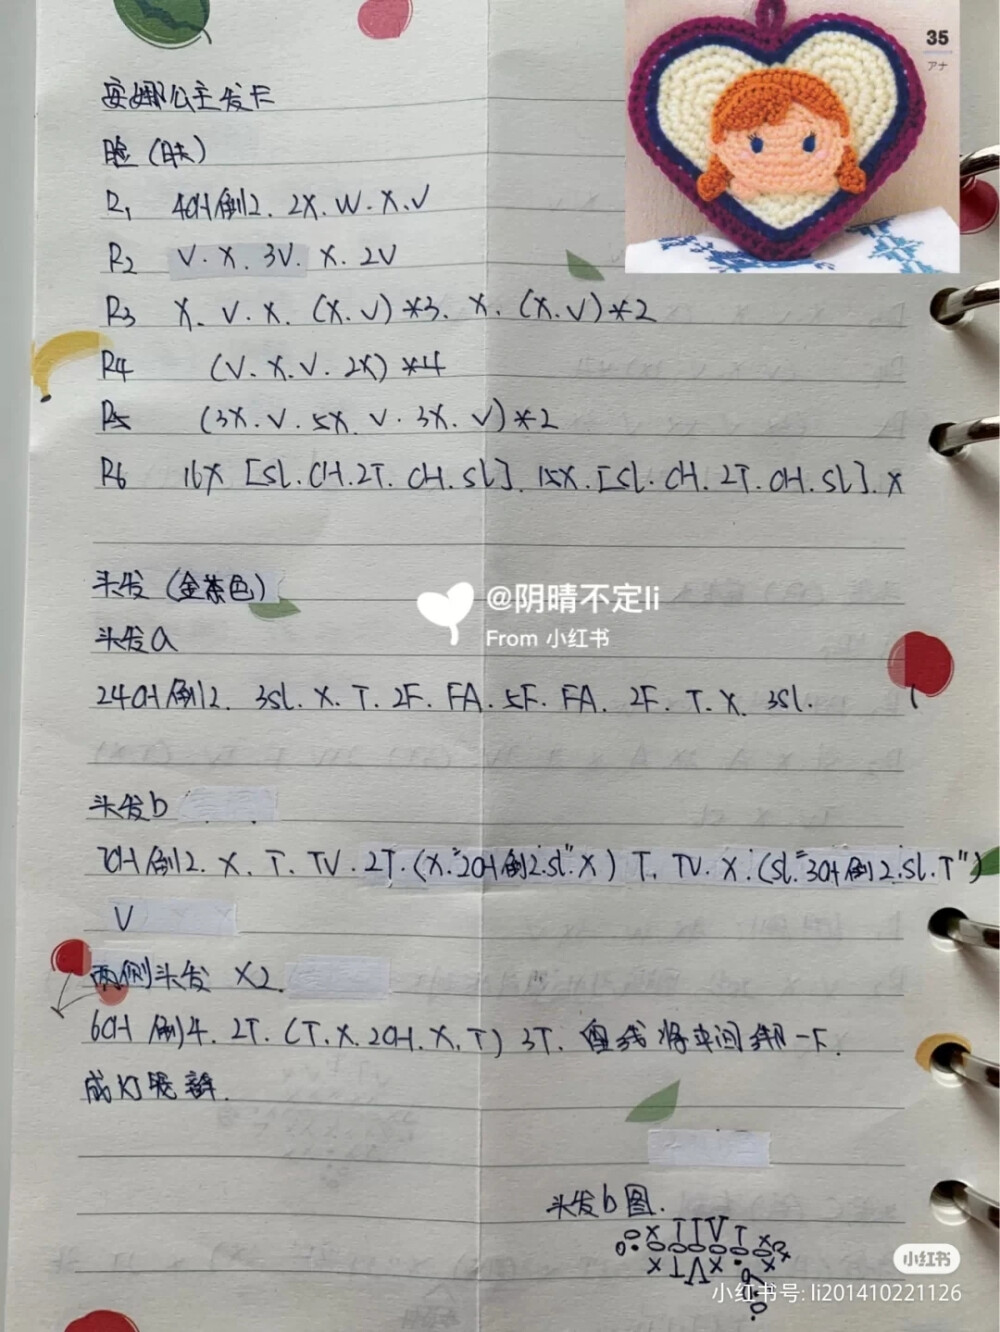 35
アナ
安娜公主发卡
脸（肤）
R1 4CH倒2. 2X. W. X. V
R2 V. X. 3V. X. 2V
R3 X. V. X. (X. V)*3. X. (X. V)*2
R4 (V. X. V. 2X)*4
R5 (3X. V. 5X. V. 3X. V)*2
R6 16X [SL. CH. 2T. CH. SL]. 15X. [SL. CH. 2T. CH. SL]. X
头发（金茶色）
@阴晴不定li
From 小红书
头发a
24CH倒2. 3SL. X. T. 2F. FA. 5F. FA. 2F. T. X. 3SL.
头发b
7CH倒2. X. T. TV. 2T. (X. "2CH倒2.SL" X) T. TV. X. (SL. "3CH倒2.SL. T")
V
两侧头发 X2.
6CH倒4. 2T. (T. X. 2CH. X. T) 3T. 留线将中间绑一下.
成灯笼辫.
头发b图.
小红书
小红书号: li201410221126